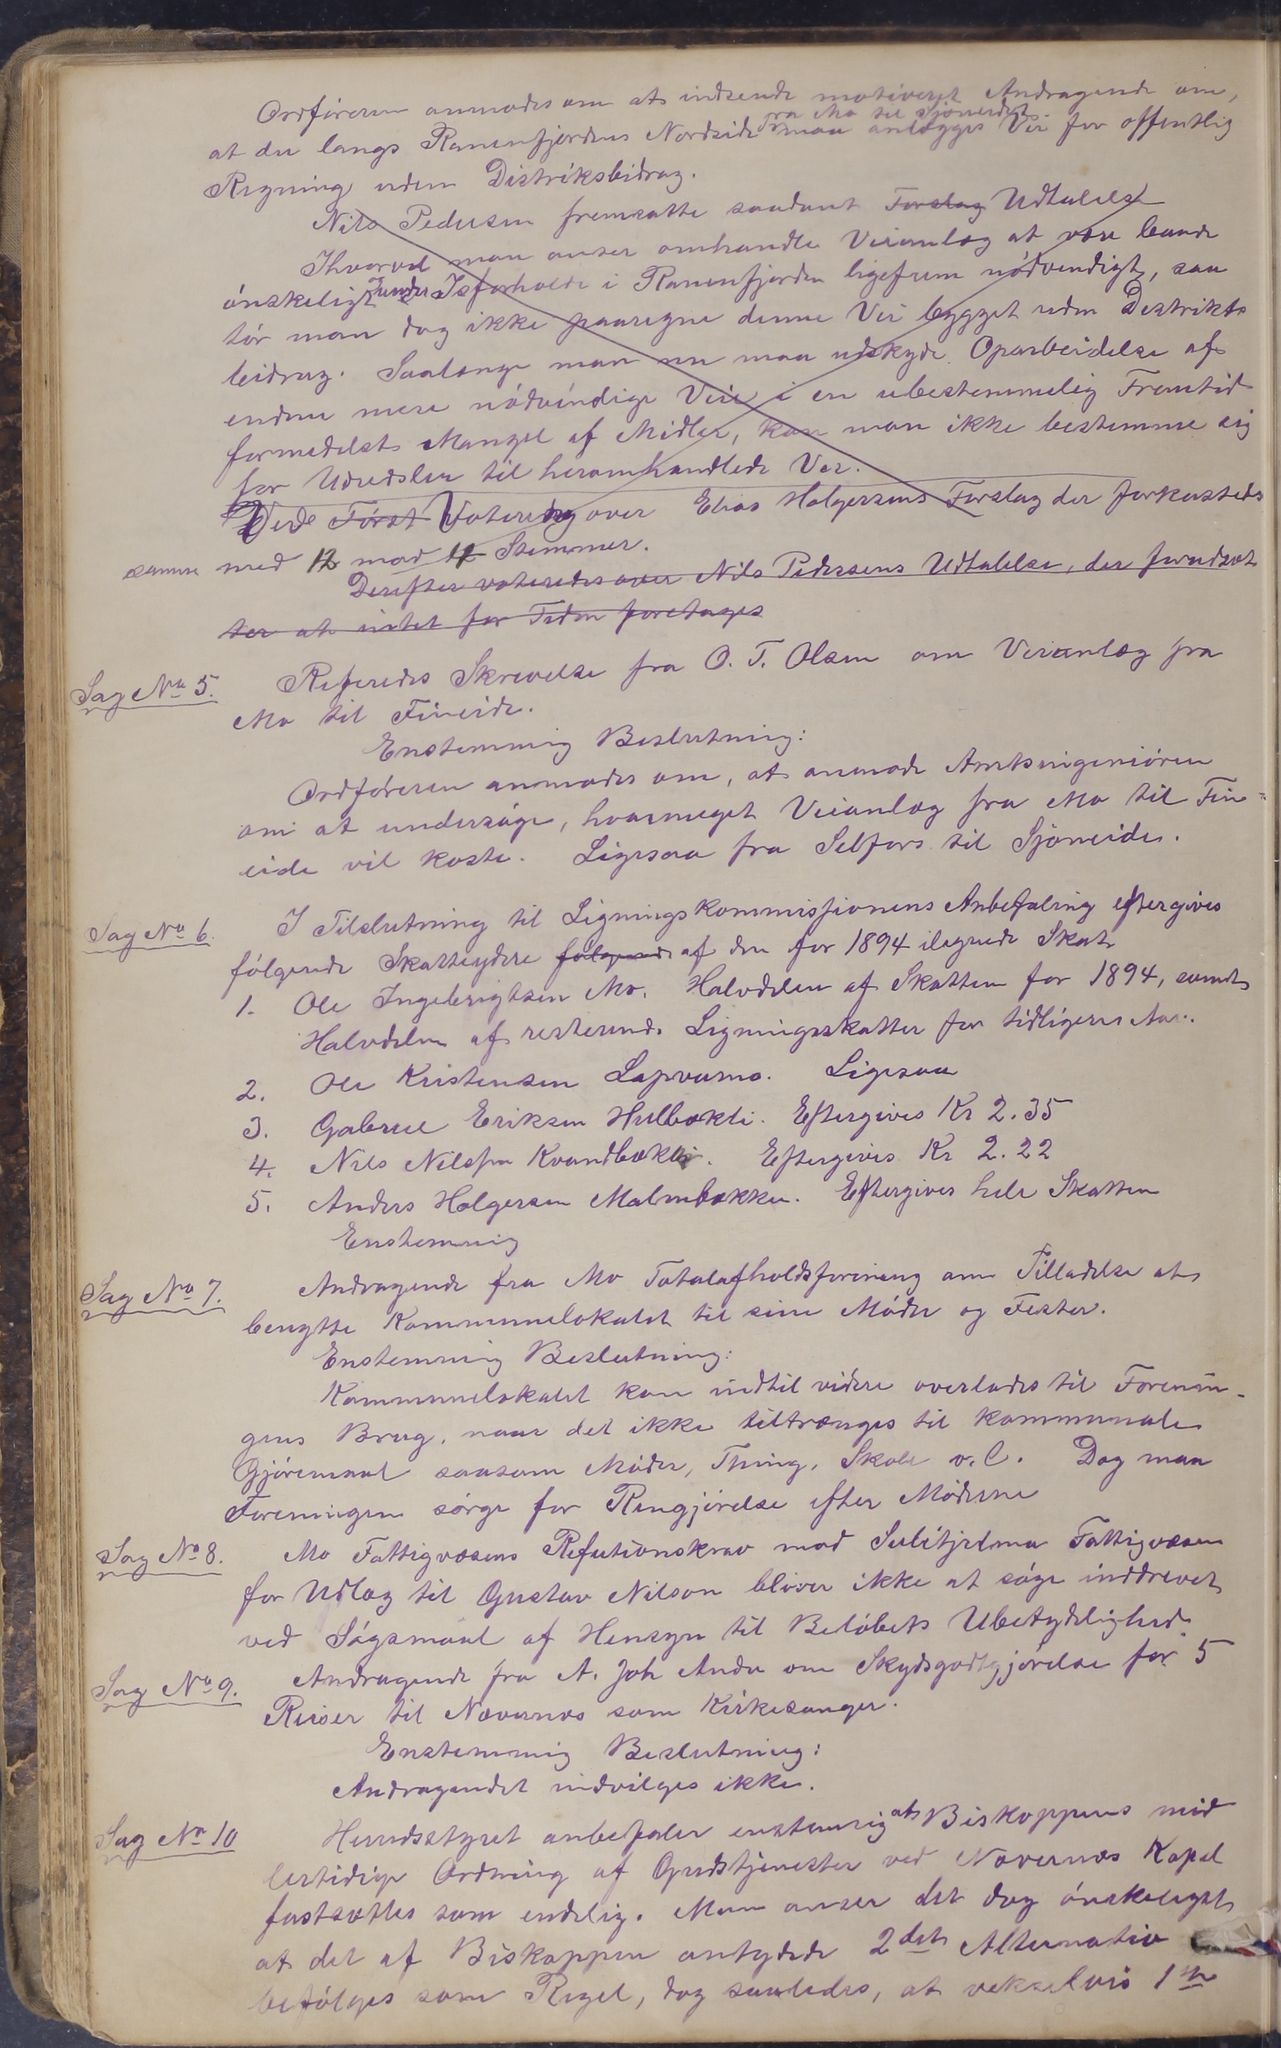 Ordføreren anmodes om at indsende motiveret Andragende om,
fra Mo til Sjoneidet
at der langs Ranenfjordens Nordside maa anlægges Vei for offentlig
Regning uden Distriktsbidrag.
Nils Pedersen fremsatte saadant Forslag Udtalelse
Ihvorvel man anser omhandlede Veianlæg at være baade
ønskeligt under Isforholde i Ranenfjorden ligefrem nødvendigt, saa
tør man dog ikke paaregne denne Vei bygget uden Distrikts
bidrag. Saalænge man nu maa udskyde Oparbeidelse af
endnu mere nødvendige Veie i en ubestemmelig Fremtid
formedelst Mangel af Midler, kan man ikke bestemme sig
for Udredslen til heromhandlede Vei.
Vede Først Votering over Elias Holgersens Forslag der forkastedes
samme med 12 mod 11 Stemmer.
Derefter voteredes over Nils Pedersens Udtalelse, der forudsæt
ter at intet for Tiden foretages
Sag No 5. Refereredes Skrivelse fra O. T. Olsen om Veianlæg fra
Mo til Fineide.
Enstemmig Beslutning:
Ordføreren anmodes om, at anmode Amtsingeniøren
om at undersøge, hvormeget Veianlæg fra Mo til Fin=
eide vil koste. Ligesaa fra Selfors til Sjoneidet.
Sag No 6. I Tilslutning til Ligningskommissionens Anbefaling eftergives
følgende Skatteydere følgende af den for 1894 ilignede Skat
1. Ole Ingebrigtsen Mo. Halvdelen af Skatten for 1894, samt
Halvdelen af resterende Ligningsskatter for tidligere Aar.
2. Ole Kristensen Lapvamo. Ligesaa
3. Gabriel Eriksen Hulbækli. Eftergives Kr 2.35
4. Nils Nilsen Kvandbækli. Eftergives Kr 2.22
5. Anders Holgersen Malmbækken. Eftergives hele Skatten
Enstemmig
Sag No 7. Andragende fra Mo Totalafholdsforening om Tilladelse at
benytte Kommunelokalet til sine Møder og Fester.
Enstemmig Beslutning:
Kommunelokalet kan indtil videre overlades til Forenin-
gens Brug, naar det ikke tiltrænges til kommunale
Gjøremaal saasom Møder, Thing, Skole o. l. Dog maa
Foreningen sørge for Rengjørelse efter Møderne
Sag No 8. Mo Fattigvæsens Refutionskrav mod Sulitjelma Fattigvæsen
for Udlæg til Gustav Nilson bliver ikke at søge inddrevet
ved Søgsmaal af Hensyn til Beløbets Ubetydelighed.
Sag No 9. Andragende fra A. Joh Anda om Skydsgodtgjørelse for 5
Reiser til Nævernes som Kirkesanger.
Enstemmig Beslutning:
Andragendet indvilges ikke.
Sag No 10 Herredsstyret anbefaler enstemmig at Biskoppens mid
lertidige Ordning af Gudstjenester ved Nævernes Kapel
fastsættes som endelig. Man anser det dog ønskeligt
at det af Biskoppen antydede 2det Alternativ
befølges som Regel, dog saaledes, at vekselvis 1ste